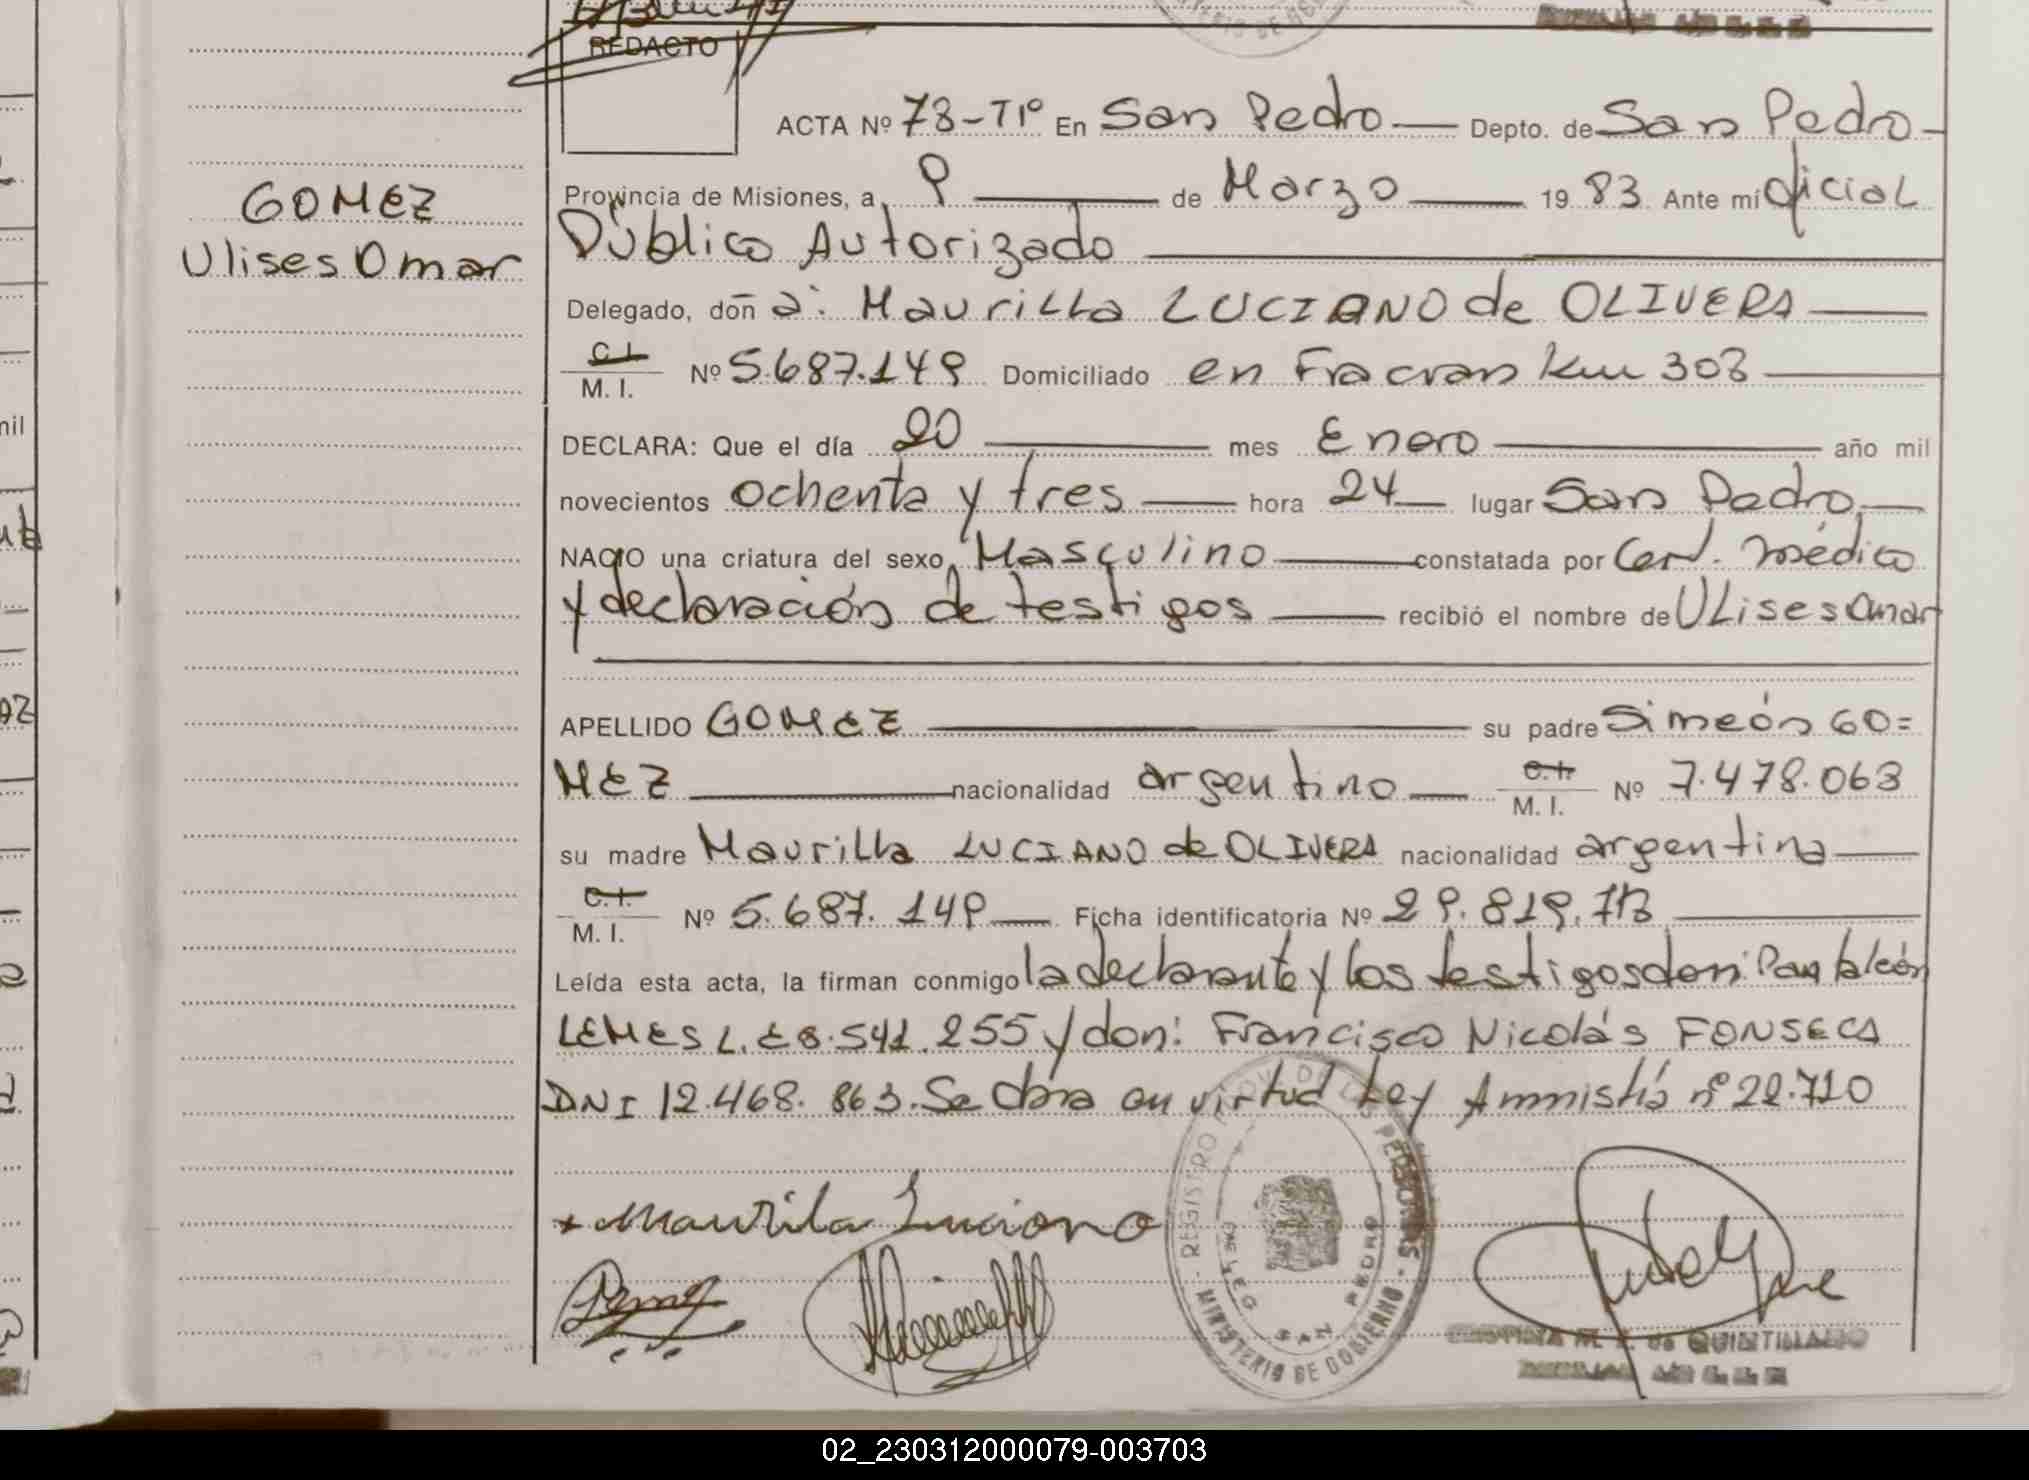 REDACTO
ACTA Nº 78-T1º En San Pedro — Depto. de San Pedro —
GOMEZ
Ulises Omar
Provincia de Misiones, a 9 — de Marzo — 1983. Ante mí Oficial
Público Autorizado —
Delegado, doña: Maurilla LUCIANO de OLIVERA —
C.I.
M. I. Nº 5.687.149 Domiciliado en Fracran Km 303 —
DECLARA: Que el día 20 — mes Enero — año mil
novecientos ochenta y tres — hora 24 — lugar San Pedro —
NACIO una criatura del sexo Masculino — constatada por Cert. médico
y declaración de testigos — recibió el nombre de Ulises Omar
APELLIDO GOMEZ — su padre Simeón GO=
MEZ — nacionalidad argentino — C.I.
M. I. Nº 7.478.063
su madre Maurilla LUCIANO de OLIVERA nacionalidad argentina —
C.I.
M. I. Nº 5.687.149 — Ficha identificatoria Nº 29.819.713 —
Leída esta acta, la firman conmigo la declarante y los testigos don: Pantaleón
LEMES L.E 8.541.255 y don: Francisco Nicolás FONSECA
DNI 12.468.863. Se labra en virtud Ley Amnistía nº 22.710
+ Maurila Luciano
REGISTRO PROV. DE LAS PERSONAS - MINISTERIO DE GOBIERNO -
DELEG SAN PEDRO
de QUINTILLANO
02_230312000079-003703